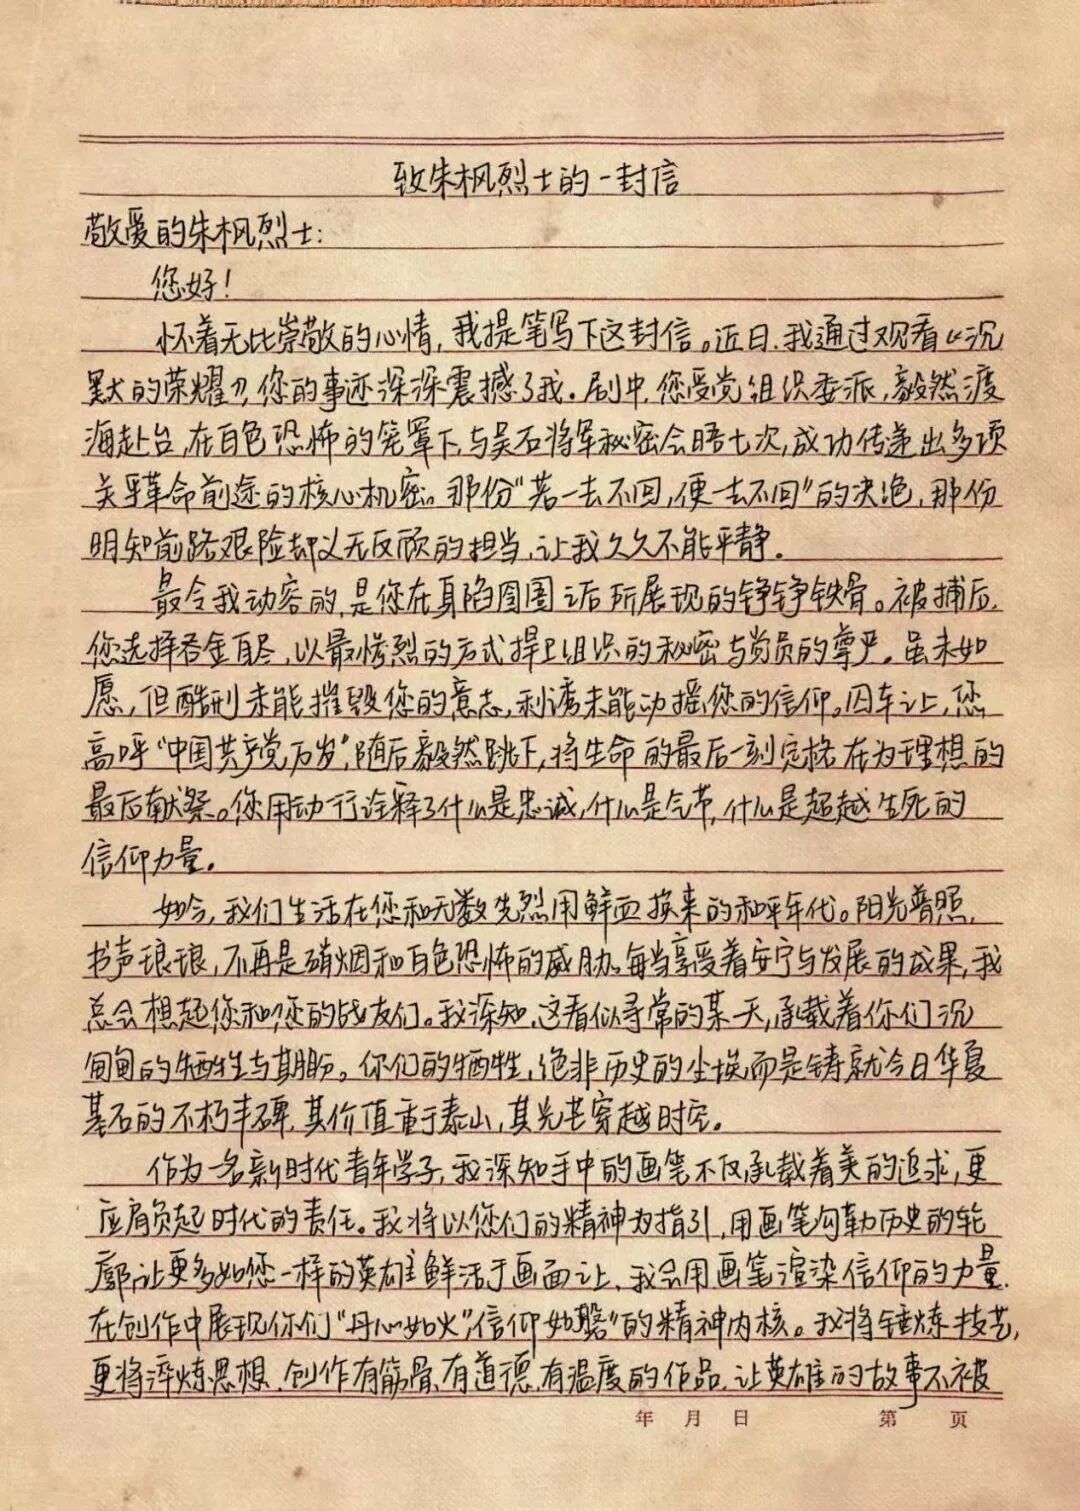 致朱枫烈士的一封信
敬爱的朱枫烈士：
您好！
怀着无比崇敬的心情，我提笔写下这封信。近日，我通过观看《沉
默的荣耀》，您的事迹深深震撼了我。剧中，您受党组织委派，毅然渡
海赴台，在白色恐怖的笼罩下，与吴石将军秘密会晤七次，成功传递出多项
关乎革命前途的核心机密。那份“若一去不回，便一去不回”的决绝，那份
明知前路艰险却义无反顾的担当，让我久久不能平静。
最令我动容的，是您在身陷囹圄之后所展现的铮铮铁骨。被捕后，
您选择吞金自尽，以最惨烈的方式捍卫组织的秘密与党员的尊严。虽未如
愿，但酷刑未能摧毁您的意志，利诱未能动摇您的信仰。囚车上，您
高呼“中国共产党万岁”，随后毅然跳下，将生命的最后一刻定格在为理想的
最后献祭。您用行动诠释了什么是忠诚，什么是气节，什么是超越生死的
信仰力量。
如今，我们生活在您和无数先烈用鲜血换来的和平年代。阳光普照，
书声琅琅，不再是硝烟和白色恐怖的威胁。每当享受着安宁与发展的成果，我
总会想起您和您的战友们。我深知，这看似寻常的某一天，承载着你们沉
甸甸的牺牲与期盼。你们的牺牲，绝非历史的尘埃，而是铸就今日华夏
基石的不朽丰碑，其价值重于泰山，其光芒穿越时空。
作为一名新时代青年学子，我深知手中的画笔不仅承载着美的追求，更
应肩负起时代的责任。我将以您们的精神为指引，用画笔勾勒历史的轮
廓，让更多如您一样的英雄鲜活于画面上，我会用画笔渲染信仰的力量，
在创作中展现你们“丹心如火”，“信仰如磐”的精神内核。我将锤炼技艺，
更将淬炼思想，创作有筋骨、有道德、有温度的作品，让英雄的故事不被
年 月 日 第 页